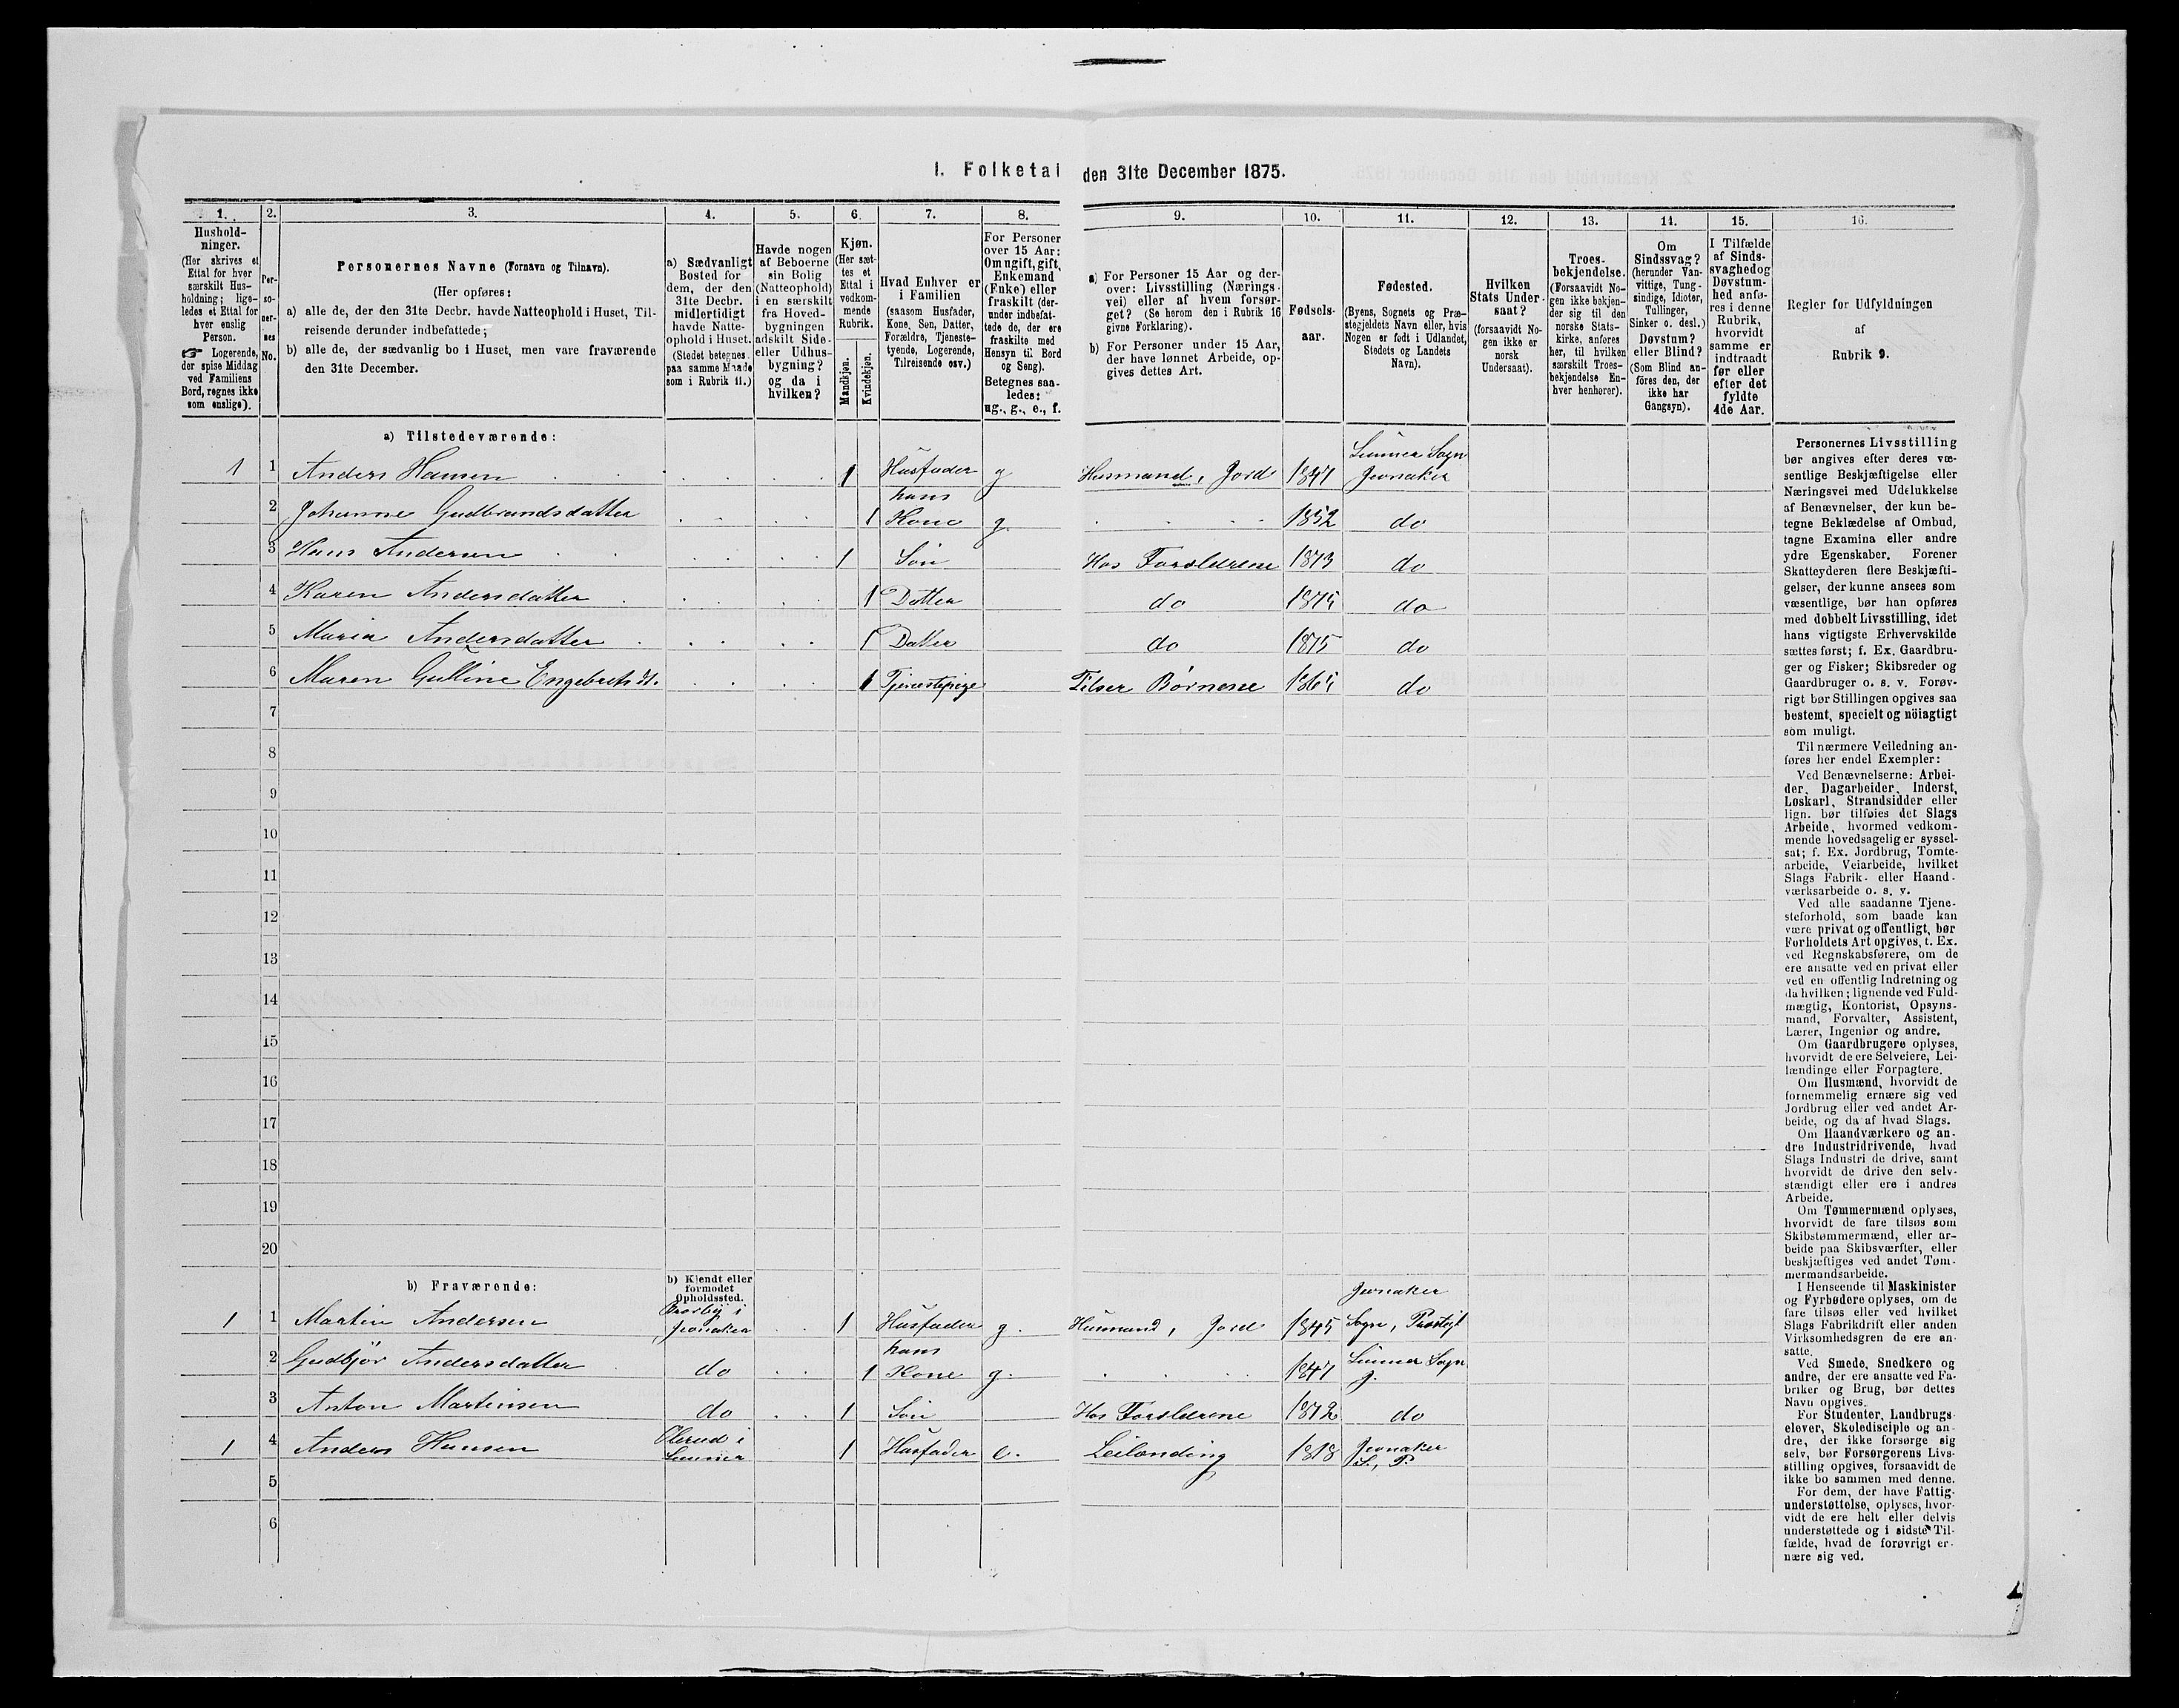 I. Folketal den 31te December 1875.
1. 2. 3. 4. 5. 6. 7. 8. 9. 10. 11. 12. 13. 14. 15. 16.
Hushold-
ninger.
(Her skrives et
Ettal for hver
særskilt Hus-
holdning; lige-
ledes et Ettal for
hver enslig
Person.
☞ Logerende,
der spise Middag
ved Familiens
Bord, regnes ikke
som enslige).
Per-
so-
ner-
nes
No.
Personernes Navne (Fornavn og Tilnavn).
(Her opføres:
a) alle de, der den 31te Decbr. havde Natteophold i Huset, Til-
reisende derunder indbefattede;
b) alle de, der sædvanlig bo i Huset, men vare fraværende
den 31te December.
a) Sædvanligt
Bosted for
dem, der den
31te Decbr.
midlertidigt
havde Natte-
ophold i Huset.
(Stedet betegnes
paa samme Maade
som i Rubrik 11.)
Havde nogen
af Beboerne
sin Bolig
(Natteophold)
i en særskilt
fra Hoved-
bygningen
adskilt Side-
eller Udhus-
bygning?
og da i
hvilken?
Kjøn.
(Her sæt-
tes et
Ettal i
vedkom-
mende
Rubrik.
Mandkjøn.
Kvindekjøn.
Hvad Enhver er
i Familien
(saasom Husfader,
Kone, Søn, Datter,
Forældre, Tjeneste-
tyende, Logerende,
Tilreisende osv.)
For Personer
over 15 Aar:
Om ugift, gift,
Enkemand
(Enke) eller
fraskilt (der-
under indbefat-
tede de, der ere
fraskilte med
Hensyn til Bord
og Seng).
Betegnes saa-
ledes:
ug., g., e., f.
a) For Personer 15 Aar og der-
over: Livsstilling (Nærings-
vei) eller af hvem forsør-
get? (Se herom den i Rubrik 16
givne Forklaring).
b) For Personer under 15 Aar,
der have lønnet Arbeide, op-
gives dettes Art.
Fødsels-
aar.
Fødested.
(Byens, Sognets og Præ-
stegjeldets Navn eller, hvis
Nogen er født i Udlandet,
Stedets og Landets
Navn).
Hvilken
Stats Under-
saat?
(forsaavidt No-
gen ikke er
norsk
Undersaat).
Troes-
bekjendelse.
(Forsaavidt No-
gen ikke bekjen-
der sig til den
norske Stats-
kirke, anføres
her, til hvilken
særskilt Troes-
bekjendelse En-
hver henhører).
Om
Sindssvag?
(herunder Van-
vittige, Tung-
sindige, Idioter,
Tullinger,
Sinker o. desl.)
Døvstum?
eller Blind?
(Som Blind an-
føres den, der
ikke har
Gangsyn).
I Tilfælde
af Sinds-
svaghed og
Døvstum-
hed anfø-
res i denne
Rubrik,
hvorvidt
samme er
indtraadt
før eller
efter det
fyldte
4de Aar.
Regler for Udfyldningen
af
Rubrik 9.
a) Tilstedeværende:
1 1 Anders Hansen 1 Husfader g Husmand, Jord 1847 Lunner Sogn Jevnaker
2 Johanne Gudbrandsdatter 1 hans Kone g. 1852 do
3 Hans Andersen 1 Søn Hos Forældrene 1873 do
4 Karen Andersdatter 1 Datter do 1875 do
5 Maria Andersdatter 1 Datter do 1875 do
6 Maren Gulline Engebretsdt. 1 Tjenestepige Børnene 1865 do
7
8
9
10
11
12
13
14
15
16
17
18
19
20
b) Fraværende:
b) Kjendt eller
formodet
Opholdssted.
1 1 Martin Andersen i Jevnaker 1 Husfader g. Husmand, Jord 1845 Jevnaker Sogn,
2 Gudbjør Andersdatter do 1 hans Kone g. 1847 Lunner Sogn J.
3 Anton Martinsen do 1 Søn Hos Forældrene 1872 do
1 4 Anders Hansen Olerud i Lunner 1 Husfader e. Leilending 1818 Jevnaker S., P.
5
6
Personernes Livsstilling
bør angives efter deres væ-
sentlige Beskjæftigelse eller
Næringsvei med Udelukkelse
af Benævnelser, der kun be-
tegne Beklædelse af Ombud,
tagne Examina eller andre
ydre Egenskaber. Forener
Skatteyderen flere Beskjæfti-
gelser, der kunne ansees som
væsentlige, bør han opføres
med dobbelt Livsstilling, idet
hans vigtigste Erhvervskilde
sættes først; f. Ex. Gaardbru-
ger og Fisker; Skibsreder og
Gaardbruger o. s. v. Forøv-
rigt bør Stillingen opgives saa
bestemt, specielt og nöiagtigt
som muligt.
Til nærmere Veiledning an-
føres her endel Exempler:
Ved Benævnelserne: Arbei-
der, Dagarbeider, Inderst,
Løskarl, Strandsidder eller
lign. bør tilføies det Slags
Arbeide, hvormed vedkom-
mende hovedsagelig er syssel-
sat; f. Ex. Jordbrug, Tomte-
arbeide, Veiarbeide, hvilket
Slags Fabrik- eller Haand-
værksarbeide o. s. v.
Ved alle saadanne Tjene-
steforhold, som baade kan
være privat og offentligt, bør
Forholdets Art opgives, t. Ex.
ved Regnskabsførere, om de
ere ansatte ved en privat eller
ved en offentlig Indretning og
da hvilken; lignende ved Fuld-
mægtig, Kontorist, Opsyns-
mand, Forvalter, Assistent,
Lærer, Ingeniør og andre.
Om Gaardbrugere oplyses,
hvorvidt de ere Selveiere, Lei-
lændinge eller Forpagtere.
Om Husmænd, hvorvidt de
fornemmelig ernære sig ved
Jordbrug eller ved andet Ar-
beide, og da af hvad Slags.
Om Haandværkere og an-
dre Industridrivende, hvad
Slags Industri de drive, samt
hvorvidt de drive den selv-
stændigt eller ere i andres
Arbeide.
Om Tømmermænd oplyses,
hvorvidt de fare tilsøs som
Skibstømmermænd, eller ar-
beide paa Skibsværfter, eller
beskjæftiges ved andet Tøm-
mermandsarbeide.
I Henseende til Maskinister
og Fyrbødere oplyses, om de
fare tilsøs eller ved hvilket
Slags Fabrikdrift eller anden
Virksomhedsgren de ere an-
satte.
Ved Smede, Snedkere og
andre, der ere ansatte ved Fa-
briker og Brug, bør dettes
Navn opgives.
For Studenter, Landbrugs-
elever, Skoledisciple og an-
dre, der ikke forsørge sig
selv, bør Forsørgerens Livs-
stilling opgives, forsaavidt de
ikke bo sammen med denne.
For dem, der have Fattig-
understøttelse, oplyses, hvor-
vidt de ere helt eller delvis
understøttede og i sidste Til-
fælde, hvad de forøvrigt er-
nære sig ved.